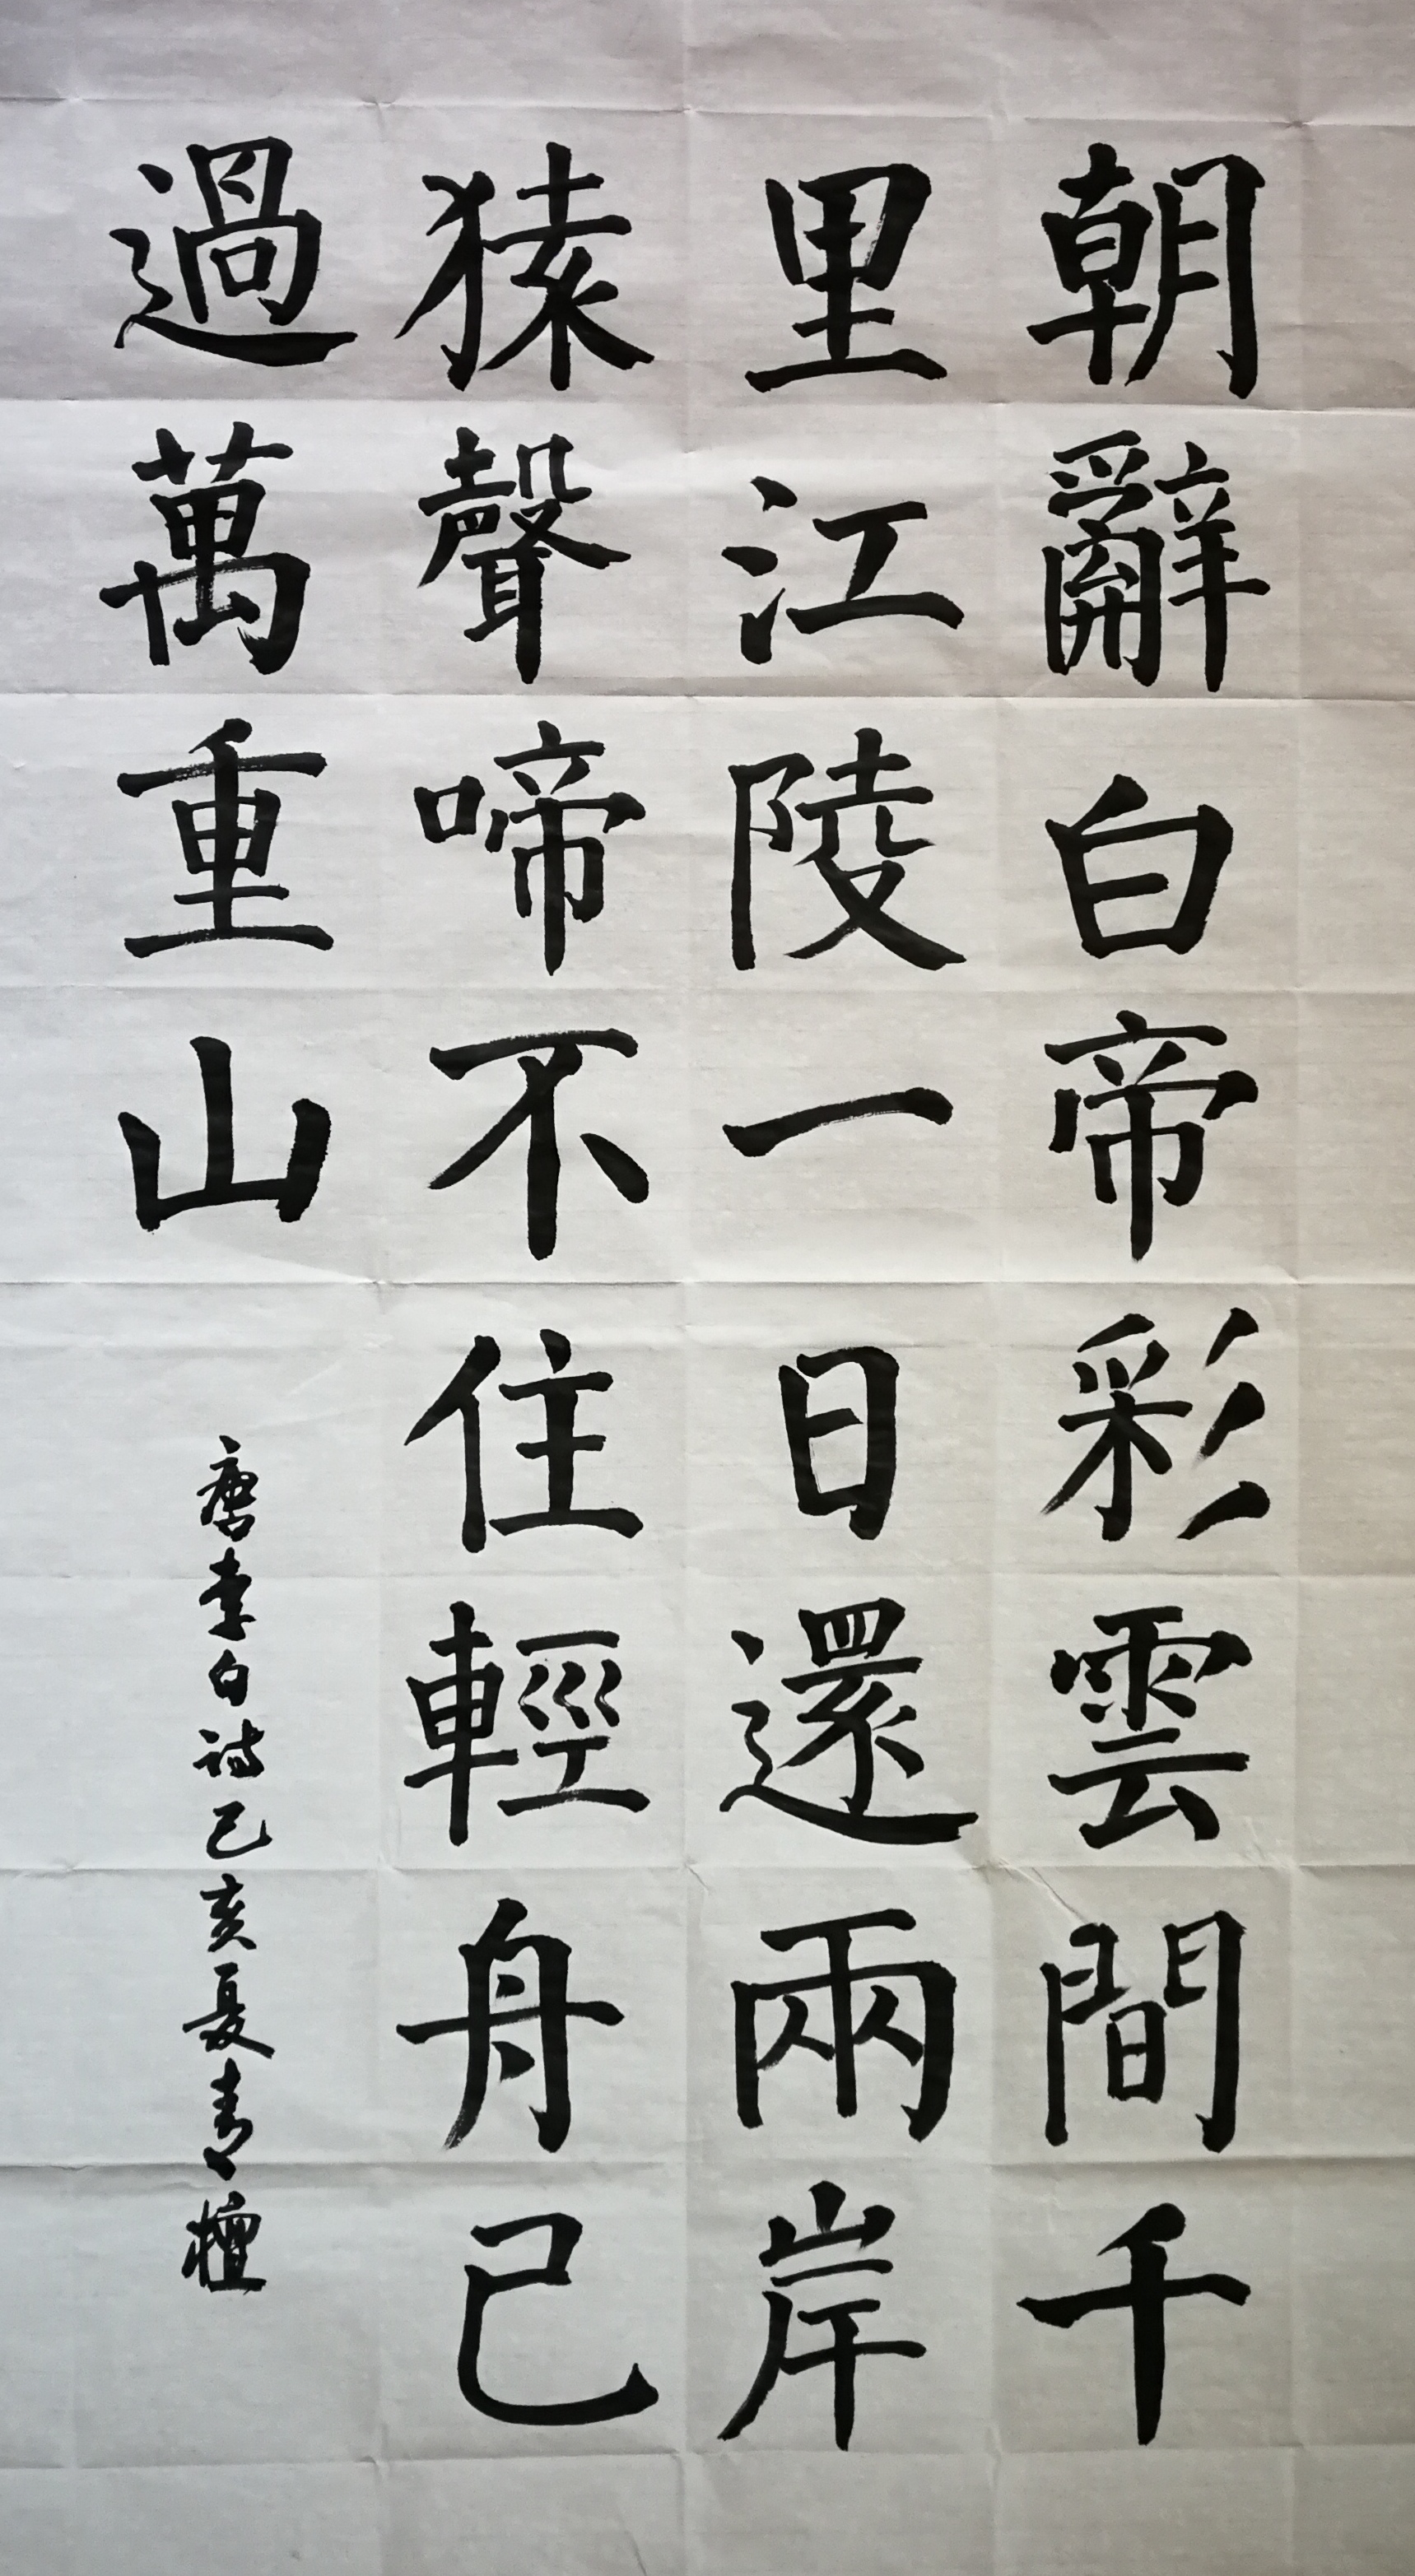 朝辭白帝彩雲間千
里江陵一日還兩岸
猿聲啼不住輕舟已
過萬重山
唐李白诗己亥夏青檀